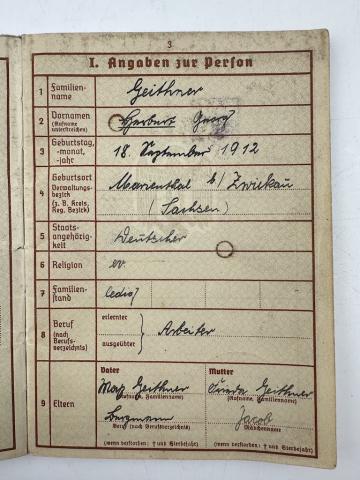 3
I. Angaben zur Person
1 Familien-
name
Geithner
2 Vornamen
(Rufname
unterstreichen)
Herbert Georg
3 Geburtstag,
-monat,
-jahr
18. September 1912
4 Geburtsort
Verwaltungs-
bezirk
(z. B. Kreis,
Reg. Bezirk)
Marienthal b/ Zwickau
(Sachsen)
5 Staats-
angehörig-
keit
Deutscher
6 Religion
ev.
7 Familien-
stand
ledig
8 Beruf
(nach
Berufs-
verzeichnis)
erlernter
ausgeübter
Arbeiter
9 Eltern
Vater Mutter
Max Geithner Linda Geithner
(Rufname, Familienname) (Rufname, Familienname)
Bergmann Jacob
Beruf (nach Berufsverzeichnis) (Mädchenname)
(wenn verstorben: † und Sterbejahr) (wenn verstorben: † und Sterbejahr)